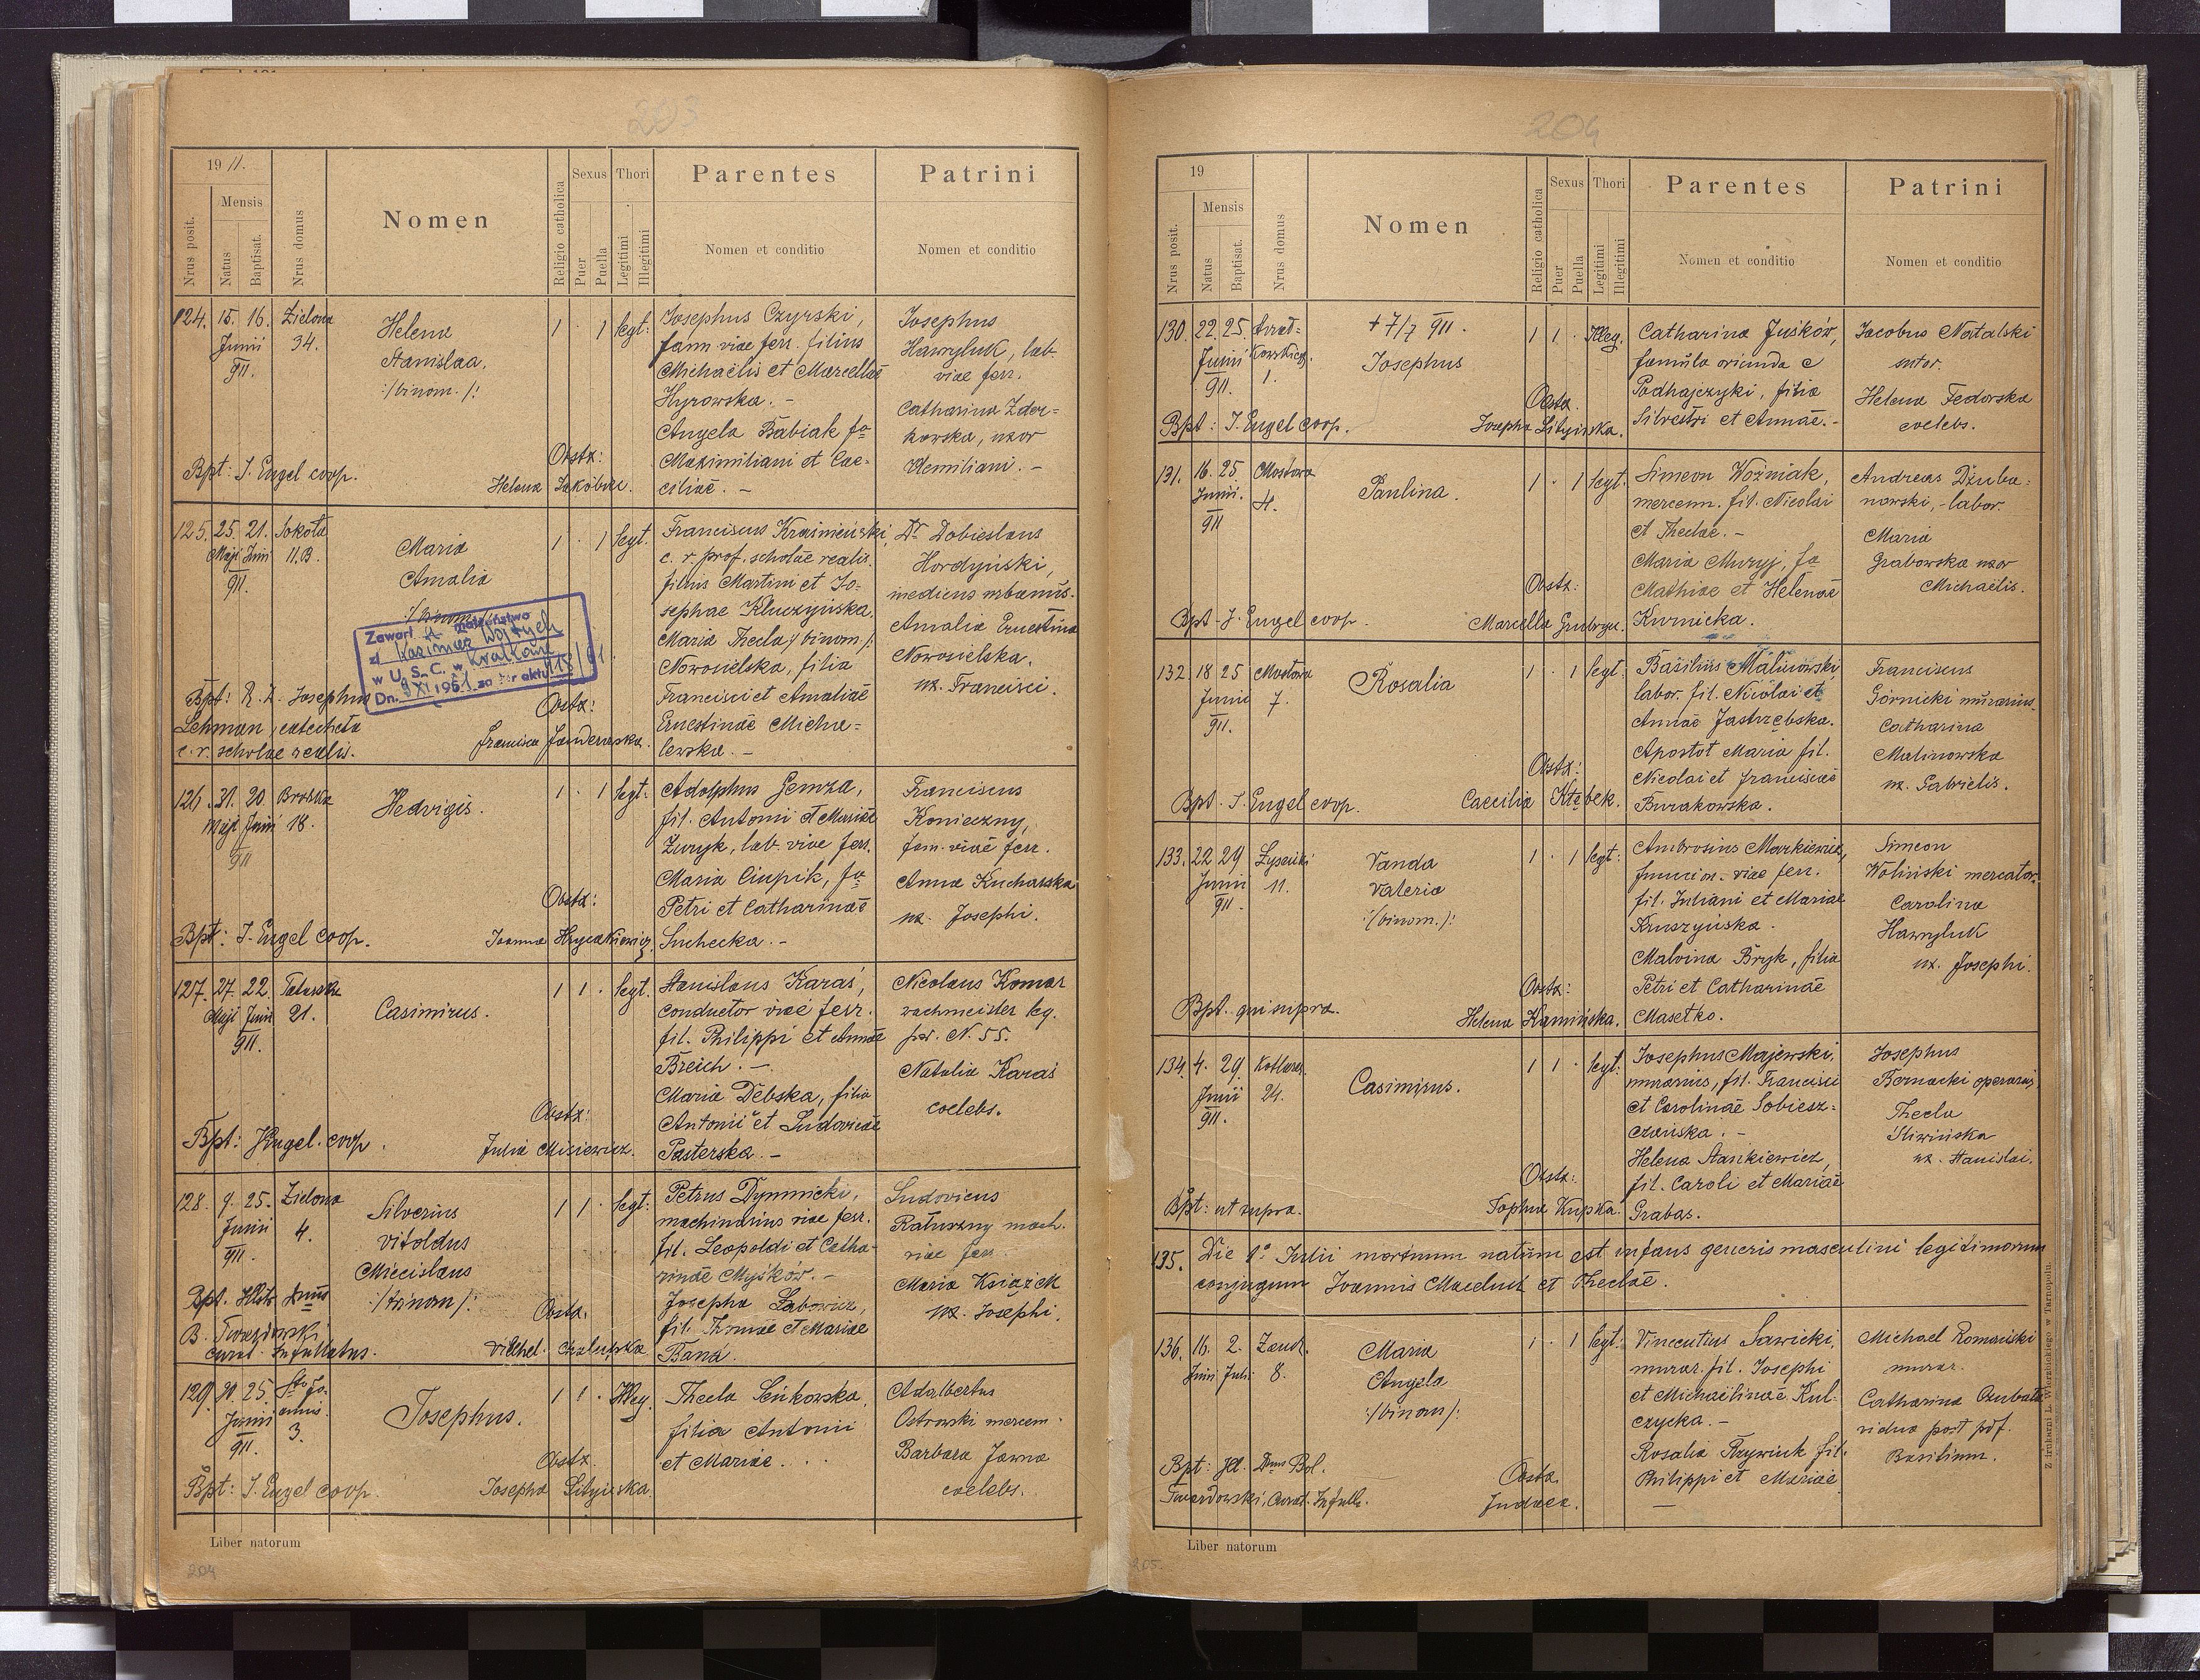 203
19 11.
Nrus posit.
Mensis
Natus
Baptisat.
Nrus domus
Nomen
Religio catholica
Sexus
Puer
Puella
Thori
Legitimi
Illegitimi
Parentes
Nomen et conditio
Patrini
Nomen et conditio
124. 15. 16. Zielona
Junii 34.
911.
Helena
Stanislaa.
:/binom./:
1 · 1 legt:
Josephus Czyrski,
fam. viae ferr. filius
Michaëlis et Marcellae
Hyrowska. -
Angela Babiak fa
Maximiliani et Cae-
ciliae. -
Josephus
Hawryluk, lab.
viae ferr.
Catharina Zder=
kowska, uxor
Aemiliani. -
Obstx:
Bpt: J. Engel coop.
Helena Jakóbiec.
125. 25. 21. Sokoła
Maji Juni 11.B.
911.
Maria
Amalia
:/binom./:
1 · 1 legt.
Franciscus Kraśmieński,
c. r. prof. scholae realis.
filius Martini et Jo-
sephae Kluczyńska.
Maria Thecla /:binom/:
Nowosielska, filia
Francisci et Amaliae
Ernestinae Micha=
lewska. -
Dr Dobieslaus
Hordyński,
medicus urbanus.
Amalia Ernestina
Nowosielska.
ux. Francisci.
Zawarł a małżeństwo
z Kazimierz Wojtych
w U. S. C. w Krakowie
Dn. 9 XI 1951 za nr aktu 118/61
Bpt: R. X. Josephus
Lehman, catecheta
c. r. scholae realis.
Obstx:
Francisca Janderupska.
126. 31. 20. Brozka
Maji Junii 18.
911
Hedvigis.
1 · 1 legt:
Adolphus Gemza,
fil. Antonii et Mariae
Zuryk, lab. viae ferr.
Maria Ciupik, fa
Petri et Catharinae
Suchecka. -
Franciscus
Konieczny,
fam. viae ferr.
Anna Kucharska
ux. Josephi.
Obstx:
Bpt: J. Engel coop.
Joanna Hrycakiewicz.
127. 27. 22. Tatarska
Maji Junii 21.
911.
Casimirus.
1 1 · legt.
Stanislaus Karaś,
conductor viae ferr.
fil. Philippi et Annae
Breich. -
Maria Dębska, filia
Antonii et Ludovicae
Pasterska. -
Nicolaus Komar
wachmeister leg.
N. 55.
Natalia Karaś
coelebs.
Obstx:
Bpt: J. Engel. coop.
Julia Misiewicz.
128. 9. 25. Zielona
Junii 4.
911.
Silverius
Vitoldus
Miecislaus
:/trinom/:
1 1 · legt:
Petrus Dymnicki,
machinarius viae ferr.
fil. Leopoldi et Catha-
rinae Myśków. -
Josepha Łabowicz,
fil. Thomae et Mariae
Bana.
Ludovicus
Ratuszny mach.
viae ferr.
Maria Książek
ux. Josephi.
Obstx.
Bpt. Illstr. Dnus
B. Twardowski
curat. Infullatus.
Vilhel. Chalupska
129. 20. 25. Sto Jo-
Junii annis.
911. 3.
Josephus.
1 1 · Illeg.
Thecla Seńkowska,
filia Antonii
et Mariae.
Adalbertus
Ostrowski mercem.
Barbara Jawna
coelebs.
Obstx.
Bpt: J. Engel coop.
Josepha Lityńska.
Liber natorum
204
204
19
Nrus posit.
Mensis
Natus
Baptisat.
Nrus domus
Nomen
Religio catholica
Sexus
Puer
Puella
Thori
Legitimi
Illegitimi
Parentes
Nomen et conditio
Patrini
Nomen et conditio
130. 22. 25.
Junii 1.
911.
+ 7/7 911.
Josephus
1 1 · Illeg.
Catharina Juśków,
famula oriunda e
Podhajczyki, filia
Silvestri et Annae. -
Jacobus Natalski
sutor.
Helena Fedorska
coelebs.
Obstx.
Bpt: J. Engel coop.
Josepha Lityńska.
131. 16. 25. Mostowa
Junii. 4.
911
Paulina.
1 · 1 legt.
Simeon Woźniak,
mercenn. fil. Nicolai
et Theclae. -
Maria Muryj, fa
Mathiae et Helenae
Kurnicka.
Andreas Dziuba=
nowski, labor.
Maria
Grabowska uxor
Michaëlis.
Obstx:
Bpt. J. Engel coop.
Marcella Grubryn.
132. 18 25 Mostowa
Junii 7.
911.
Rosalia
1 · 1 legt.
Basilius Malinowski,
labor. fil. Nicolai et
Annae Jastrzębska.
Apostoł Maria fil.
Nicolai et Franciscae
Burakowska.
Franciscus
Górnicki murarius.
Catharina
Malinowska
ux. Gabrielis.
Obstx:
Bpt. J. Engel coop.
Caecilia Kłębek.
133. 22 29 Łysenki
Junii 11.
911.
Vanda
Valeria
:/binom./:
1 · 1 legt:
Ambrosius Markiewicz,
funcion. viae ferr.
fil. Juliani et Mariae
Kruszyńska.
Malvina Bryk, filia
Petri et Catharinae
Masełko.
Simeon
Woliński mercator.
Carolina
Hawryluk
ux. Josephi.
Obstx:
Bpt. qui supra.
Helena Kamińska.
134. 4. 29.
Junii 24.
911.
Casimirus.
1 1 · legt:
Josephus Majewski,
murarius, fil. Francisci
et Carolinae Sobiesz-
czańska. -
Helena Stankiewicz,
fil. Caroli et Mariae
Grabas.
Josephus
Bernacki operarius
Thecla
Śliwińska
ux. Stanislai.
Obstx:
Bpt: ut supra.
Sophia Kupka.
135. Die 1º Julii mortuum natum est infans generis masculini legitimorum
conjugum Joannis Maceluch et Theclae.
136. 16. 2. Zand.
Junii Julii 8.
Maria
Angela
:/binom/:
1 · 1 legt:
Vincentius Sawicki,
murar. fil. Josephi
et Michaëlinae Kul-
czycka. -
Rosalia Krzywiuk fil.
Philippi et Mariae
Michael Romański
murar.
Catharina Dzubata
vidua post pdf.
Basilium.
Obstx.
Bpt: Ill. Dnus Bol.
Twardowski, Curat. Infull.
Judaea.
Liber natorum
205.
Z drukarni L. Wierzbickiego w Tarnopolu.